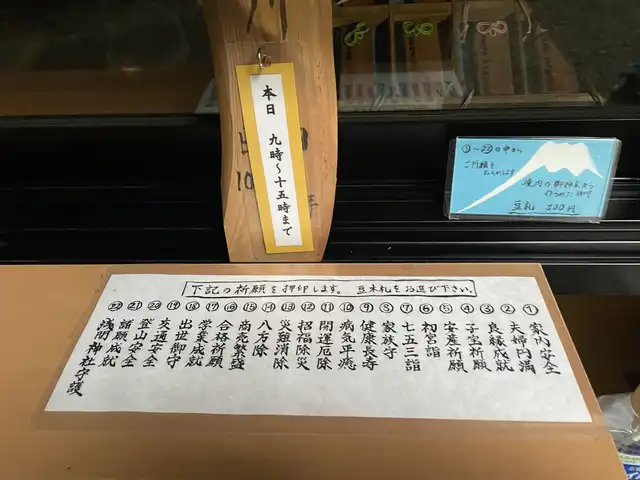 本日　九時～十五時まで
①～㉒の中から
ご祈願を
お入れします
境内の御神木から
作られた神符
豆札
下記の祈願を押印します。豆木札をお選び下さい。
① 家内安全
② 夫婦円満
③ 良縁成就
④ 子宝祈願
⑤ 安産祈願
⑥ 初宮詣
⑦ 七五三詣
⑧ 家族守
⑨ 健康長寿
⑩ 病気平癒
⑪ 開運厄除
⑫ 招福除災
⑬ 災難消除
⑭ 八方除
⑮ 商売繁盛
⑯ 合格祈願
⑰ 学業成就
⑱ 出世御守
⑲ 交通安全
⑳ 登山安全
㉑ 諸願成就
㉒ 浅間神社守護